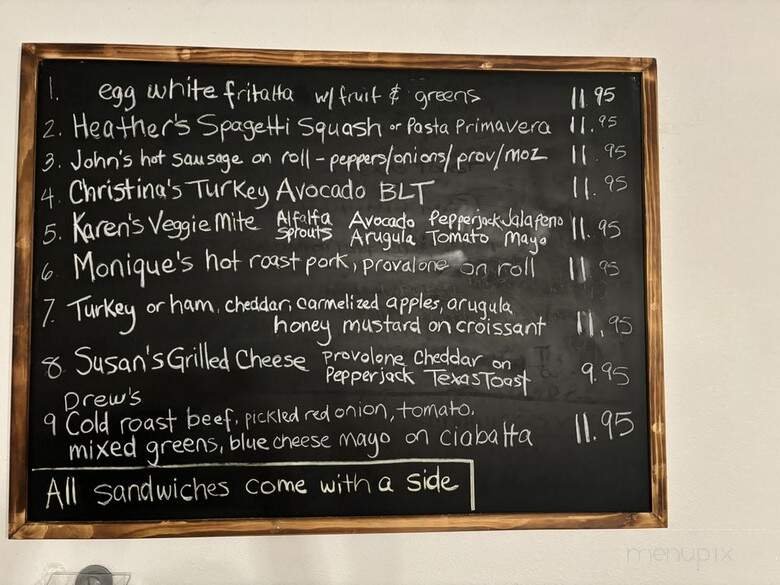 1. egg white fritatta w/ fruit & greens 11.95
2. Heather's Spagetti Squash or Pasta Primavera 11.95
3. John's hot sausage on roll - peppers/onions/prov/moz 11.95
4. Christina's Turkey Avocado BLT 11.95
5. Karen's Veggie Mite Alfalfa Avocado Pepperjack Jalapeno 11.95
Sprouts Arugula Tomato Mayo
6. Monique's hot roast pork, provalone on roll 11.95
7. Turkey or ham, cheddar, carmelized apples, arugula
honey mustard on croissant 11.95
8 Susan's Grilled Cheese Provolone Cheddar on
Pepperjack Texas Toast 9.95
Drew's
9 Cold roast beef, pickled red onion, tomato,
mixed greens, blue cheese mayo on ciabatta 11.95
All sandwiches come with a side
menupix